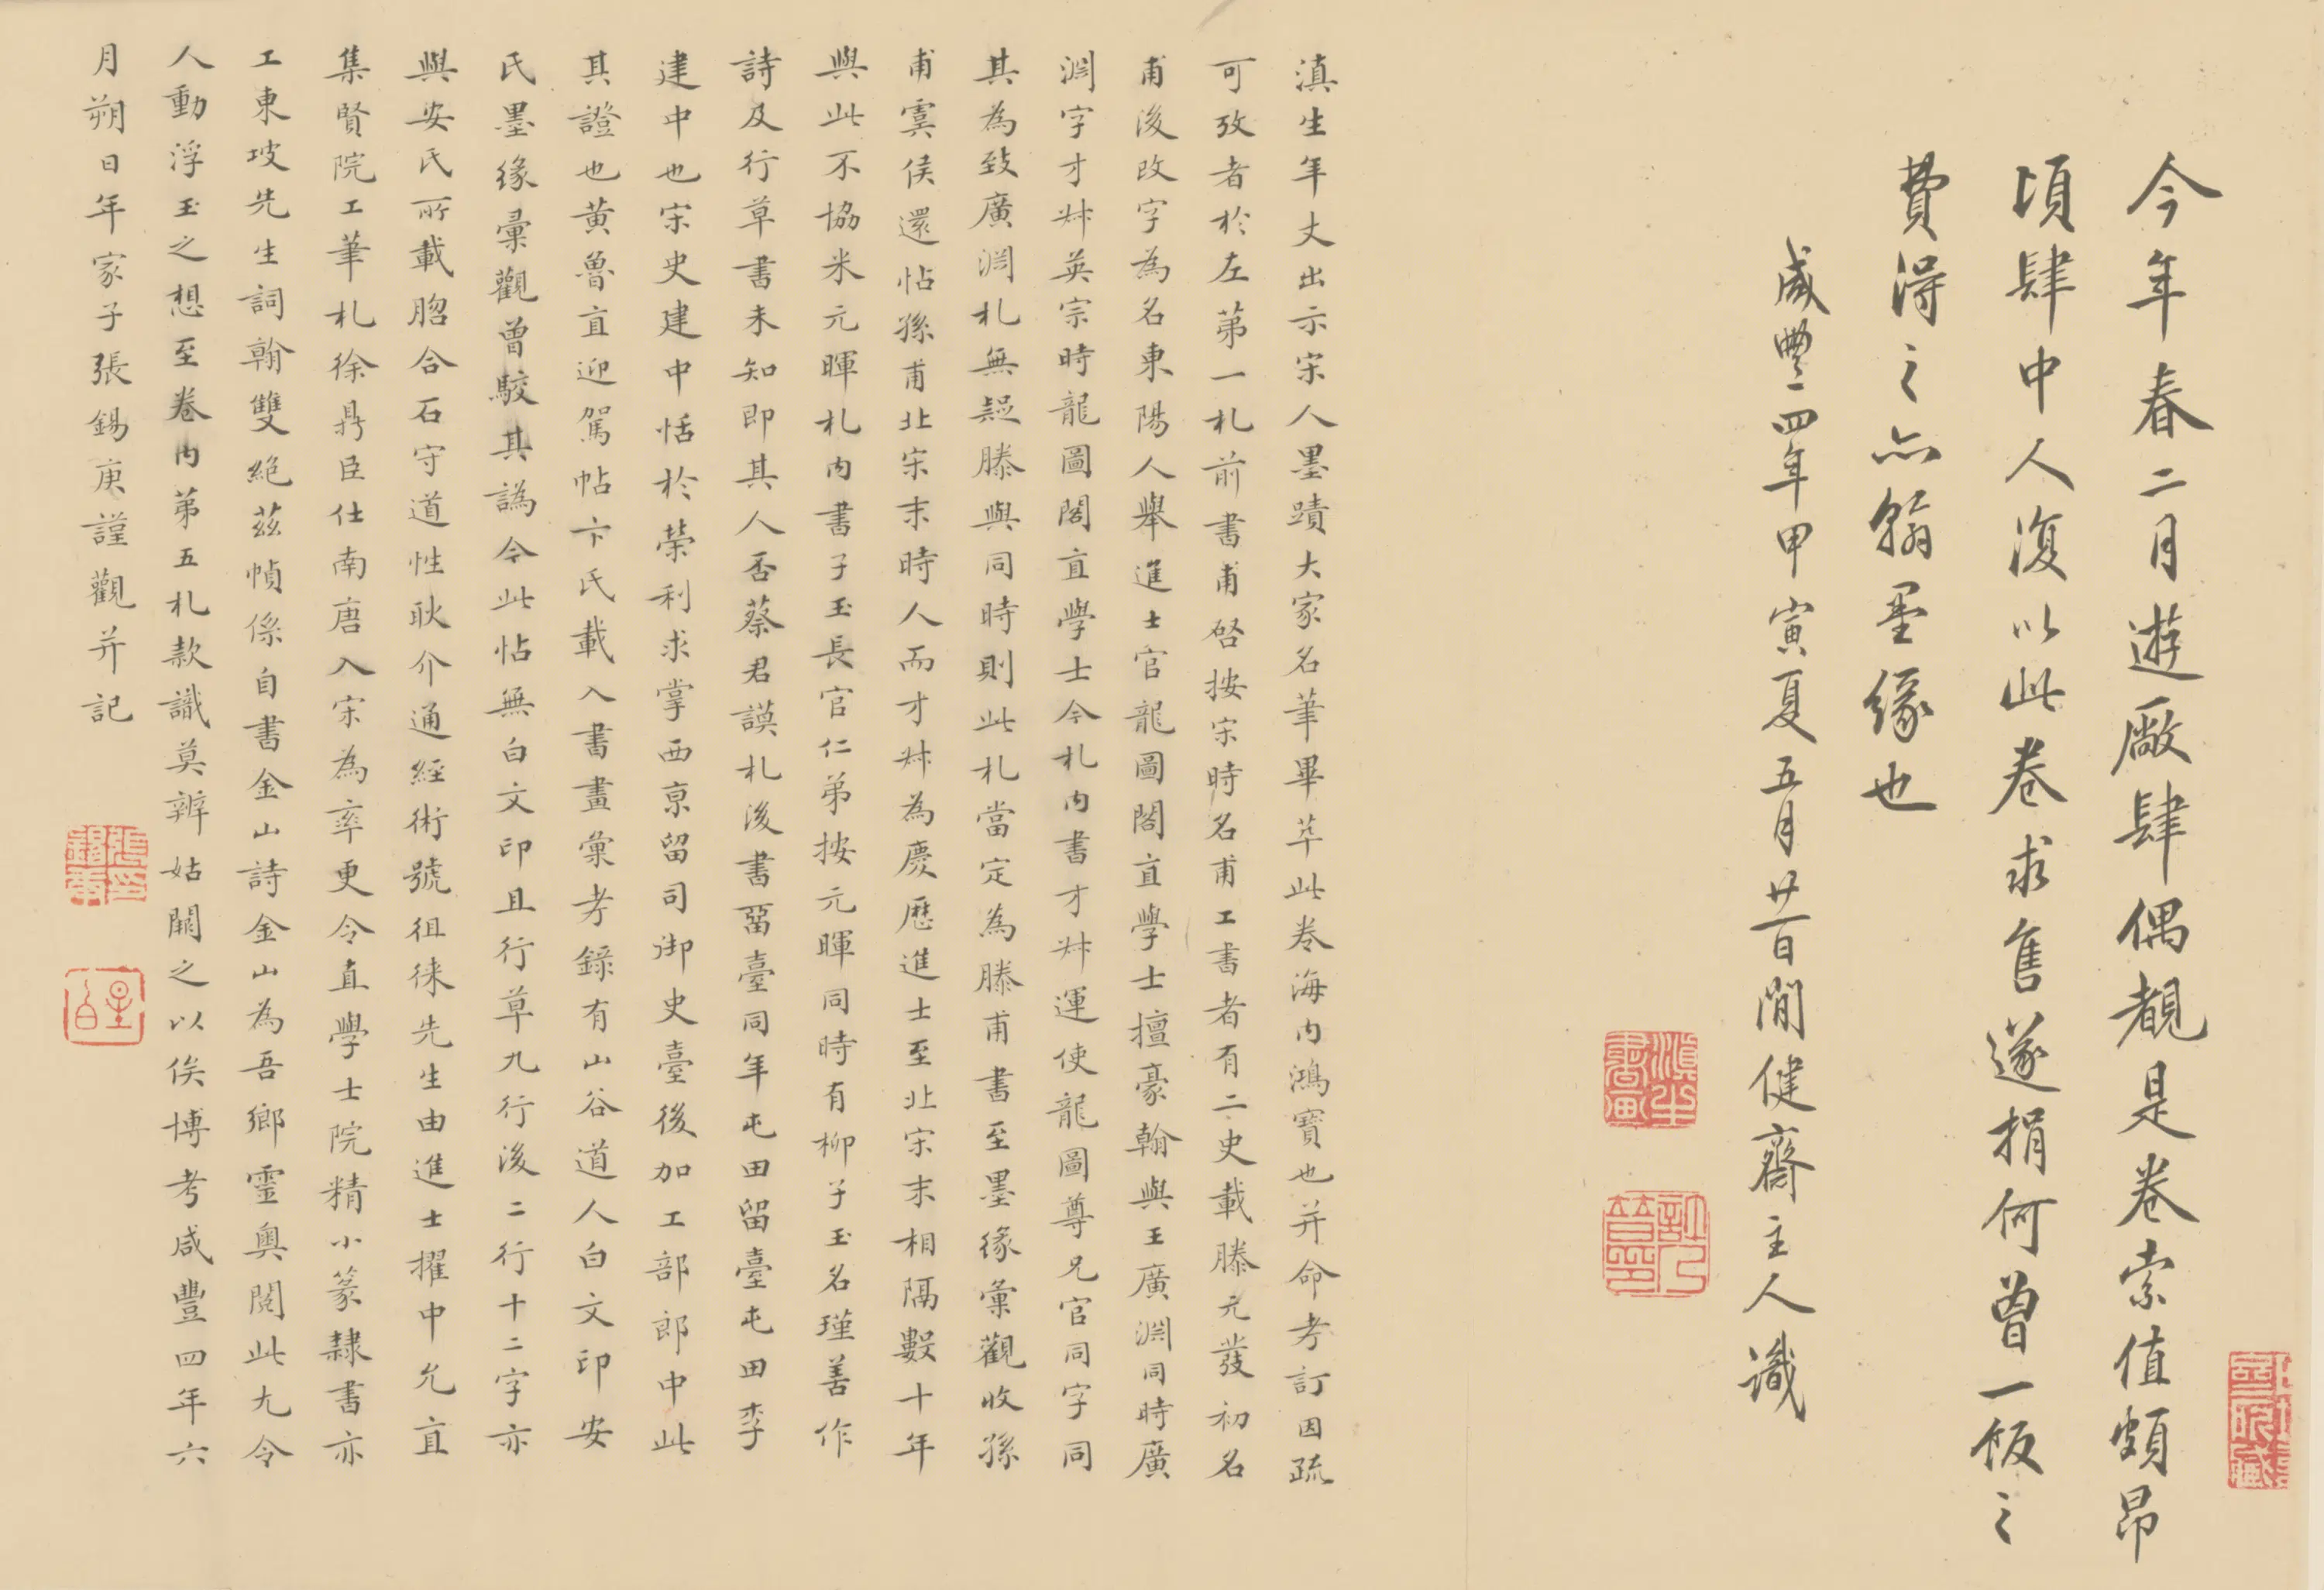 今年春二月遊廠肆偶覩是卷索值頗昂
頃肆中人復以此卷求售遂捐何曾一飯之
費得之亦翰墨緣也
咸豐四年甲寅夏五月廿一日閒健齋主人識
滇生書畫
許乃普印
滇生年丈出示宋人墨蹟大家名筆畢萃此卷海內鴻寶也并命考訂因疏
可攷者於左第一札前書甫啓按宋時名甫工書者有二史載滕元發初名
甫後改字為名東陽人舉進士官龍圖閣直學士擅豪翰與王廣淵同時廣
淵字才叔英宗時龍圖閣直學士今札內書才叔運使龍圖尊兄官同字同
其為致廣淵札無疑滕與同時則此札當定為滕甫書至墨緣彙觀收孫
甫寞侯還帖孫甫北宋末時人而才叔為慶歷進士至北宋末相隔數十年
與此不協米元暉札內書子玉長官仁弟按元暉同時有柳子玉名瑾善作
詩及行草書未知即其人否蔡君謨札後書畱臺同年屯田留臺屯田李
建中也宋史建中恬於榮利求掌西京留司御史臺後加工部郎中此
其證也黃魯直迎駕帖卞氏載入書畫彙考錄有山谷道人白文印安
氏墨緣彙觀曾駮其譌今此帖無白文印且行草九行後二行十二字亦
與安氏所載脗合石守道性耿介通經術號徂徠先生由進士擢中允直
集賢院工筆札徐鼎臣仕南唐入宋為率更令直學士院精小篆隸書亦
工東坡先生詞翰雙絕茲幀係自書金山詩金山為吾鄉靈奧閱此尢令
人動浮玉之想至卷內第五札款識莫辨姑闕之以俟博考咸豐四年六
月朔日年家子張錫庚謹觀并記
張印錫庚
星白